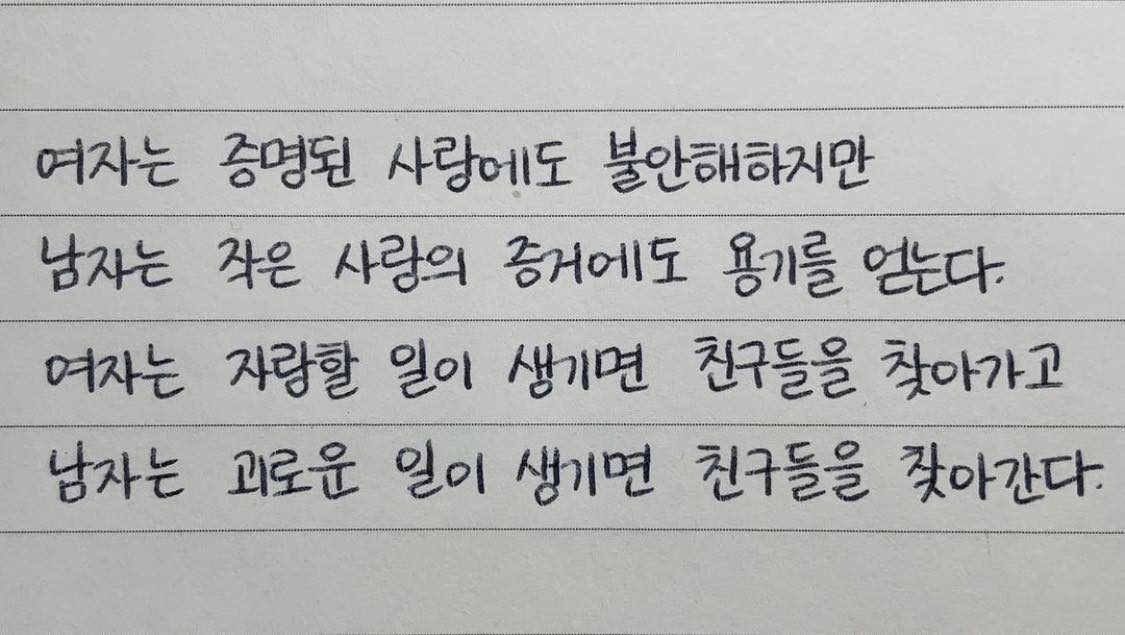 여자는 증명된 사랑에도 불안해하지만
남자는 작은 사랑의 증거에도 용기를 얻는다.
여자는 자랑할 일이 생기면 친구들을 찾아가고
남자는 괴로운 일이 생기면 친구들을 찾아간다.